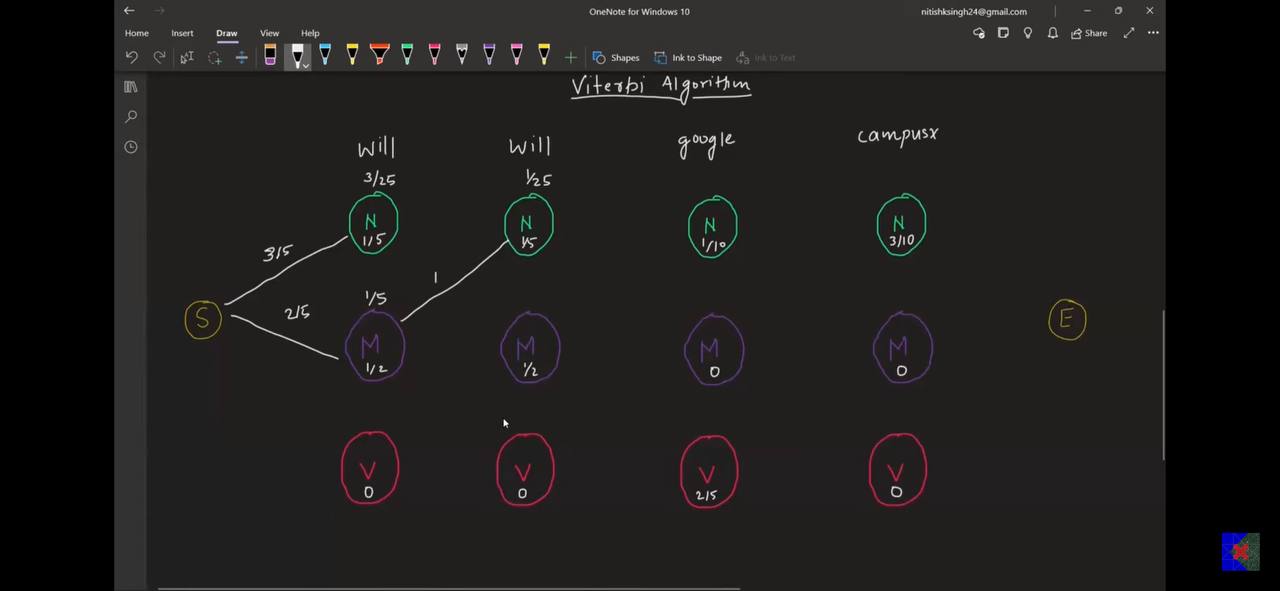 OneNote for Windows 10
nitishksingh24@gmail.com
Home Insert Draw View Help
Share
Shapes Ink to Shape Ink to Text
Viterbi Algorithm
will will google campusx
3/25 1/25
N N N N
1/5 1/5 1/10 3/10
3/5
1
1/5
2/5
S E
M M M M
1/2 1/2 0 0
V V V V
0 0 2/5 0